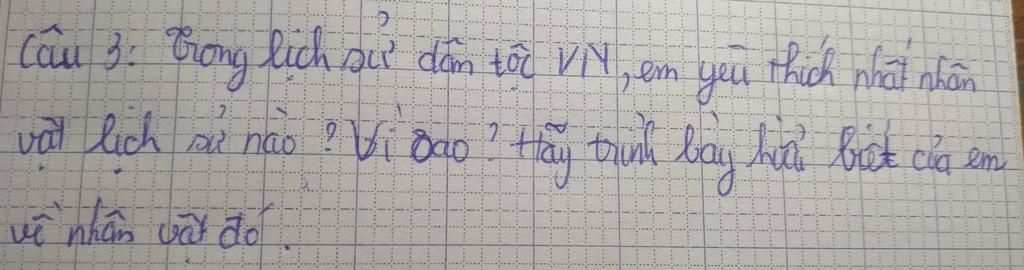 Câu 3: Trong lịch sử dân tộc VN, em yêu thích nhất nhân
vật lịch sử nào? Vì sao? Hãy trình bày hiểu biết của em
về nhân vật đó.